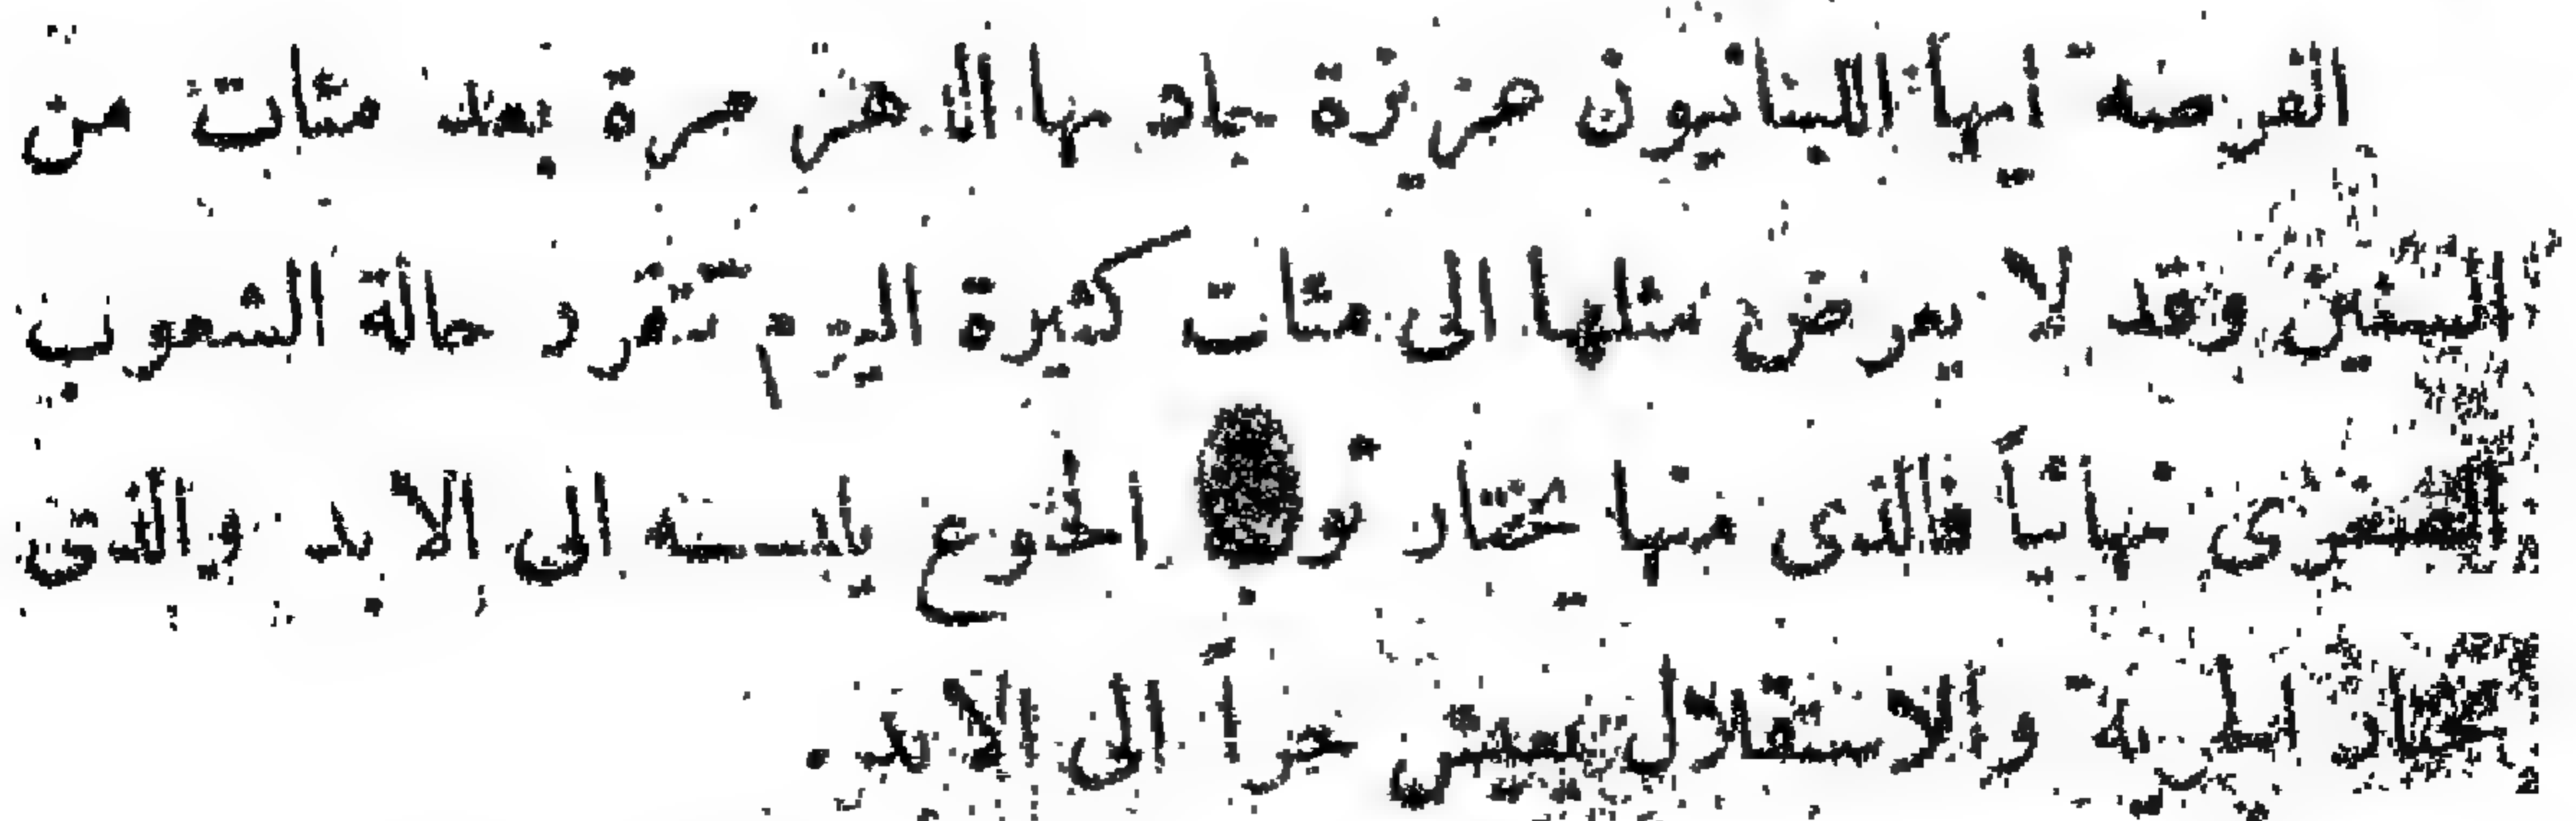 الفرصة ايها اللبنانيون عزيزة جاد بها الدهر مرة بعد مئات من
السنين وقد لا يعرض مثلها الى مئات كثيرة اليوم تتقرر حالة الشعوب
الصغرى نهائياً فالذي منها يختار ثوب الخنوع يلبسه الى الابد والذي
يختار الحرية والاستقلال يعيش حراً الى الابد.